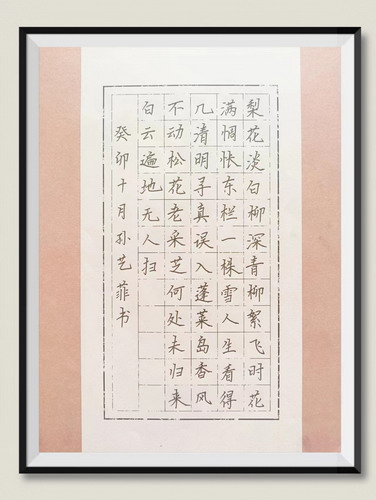 梨花淡白柳深青柳絮飞时花
满惆怅东栏一株雪人生看得
几清明寻真误入蓬莱岛香风
不动松花老采芝何处未归来
白云遍地无人扫
癸卯十月孙艺菲书